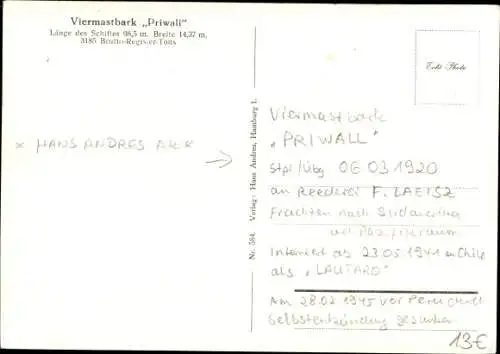 Viermastbark „Priwall"
Länge des Schiffes 98,5 m. Breite 14,37 m.
3185 Brutto-Register-Tons
× HANS ANDRES AK K →
Nr. 584. Verlag: Hans Andres, Hamburg 1.
Echt Photo
Viermastbark
„PRIWALL"
Stpl/Übg 06 03 1920
an Reederei F. LAEISZ
Frachten nach Südamerika
Interniert ab 23.05.1941 in Chile
als „LAUTARO"
Am 28.02 1945 vor Peru durch
Selbstentzündung gesunken
13€